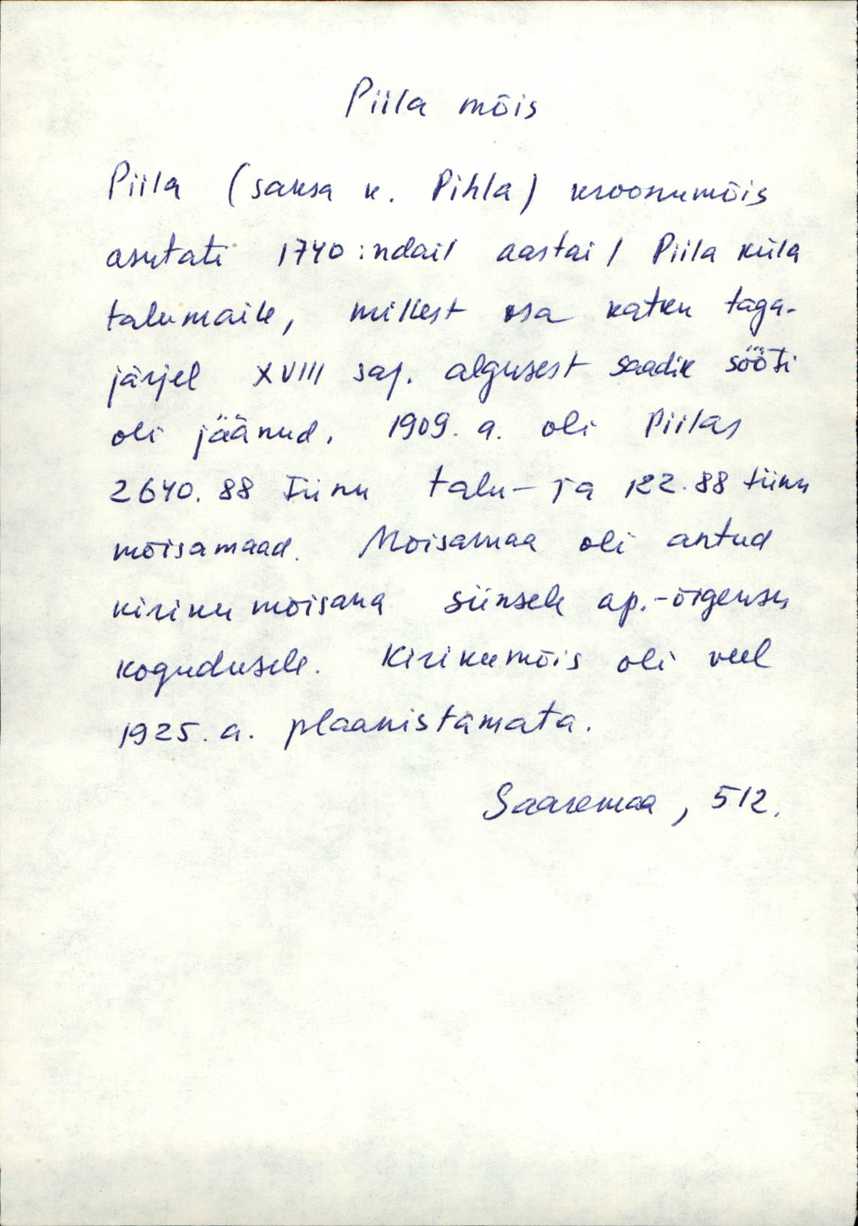 Piila mõis
Piila (saksa k. Pihla) kroonumõis
asutati 1740:ndail aastail Piila küla
talumaile, millest osa katku taga-
järjel XVIII saj. algusest saadik sööti
oli jäänud. 1909. a. oli Piilas
2640.88 tiinu talu- ja 122.88 tiinu
mõisamaad. Moisamaa oli antud
kiriku moisana siinsele ap.-õigeusu
kogudusele. Kirikumõis oli veel
1925. a. plaanistamata.
Saaremaa, 512.